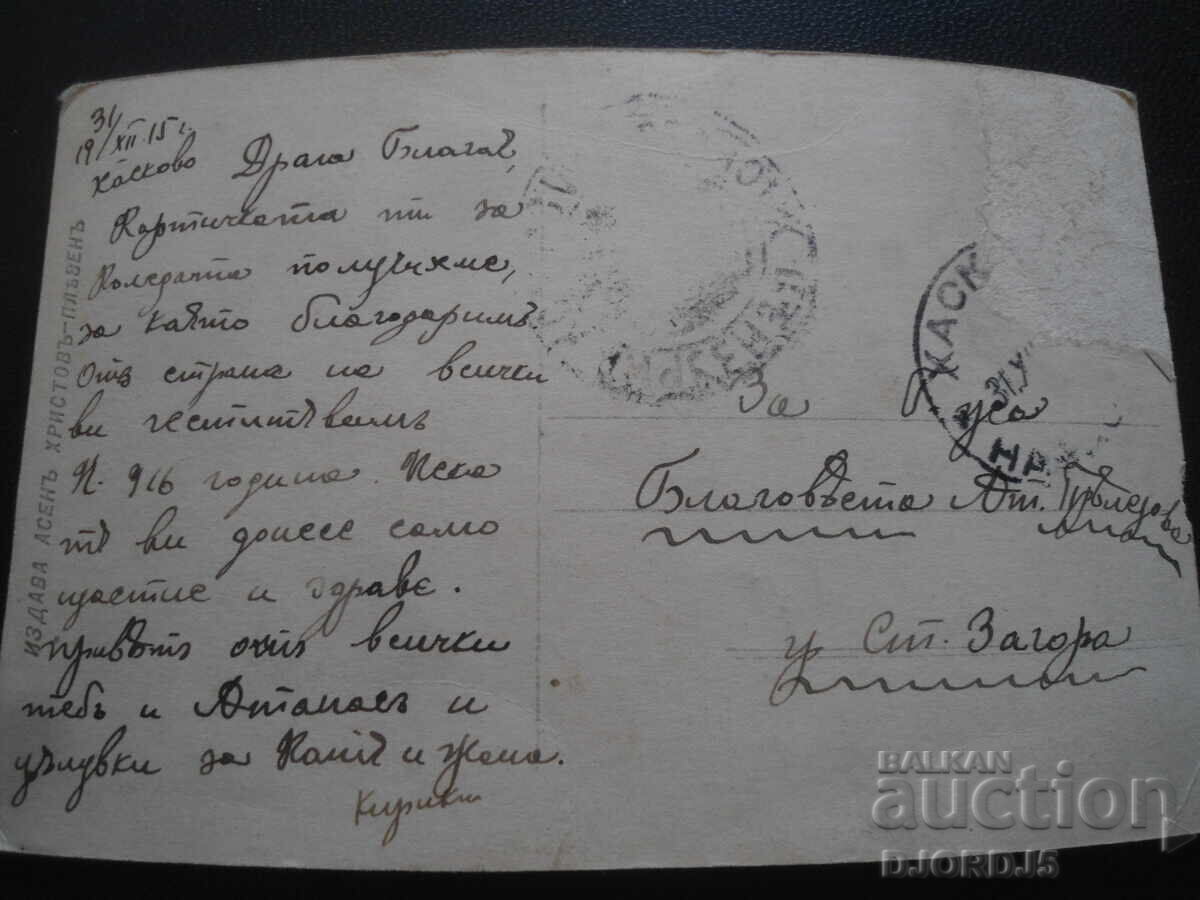 31/
19/XII 15 г.
Хасково Драга Блага,
Картичката ти за
Коледата получихме,
за което благодаримъ
Отъ страна на всички
ви честитѣвамъ
Н. 916 година. Нека
тя ви донесе само
щастие и здраве.
привѣтъ отъ всички
тебъ и Атанасъ и
цѣлувки за и Жана.
ИЗДАВА АСЕНЪ ХРИСТОВЪ-ПЛѢВЕНЪ
За
Благовѣста Ат.
у Ст. Загора
ХАСК
31 XI
BALKAN
auction
DJORDJ5